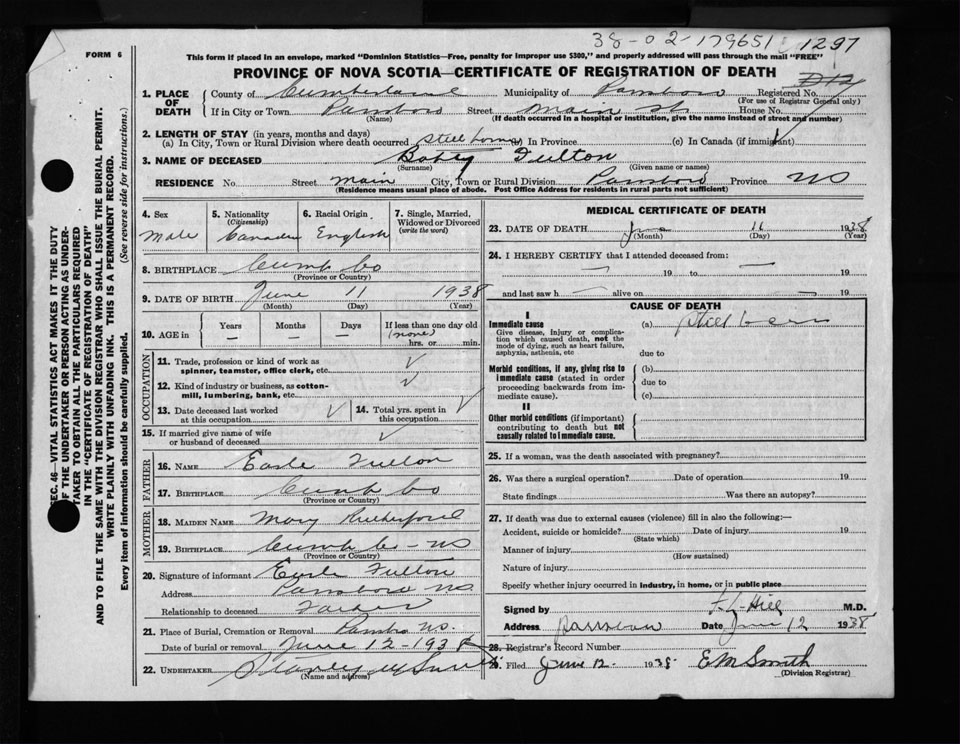 38-02-179651 1297
FORM 6
This form if placed in an envelope, marked "Dominion Statistics—Free, penalty for improper use $300," and properly addressed will pass through the mail "FREE"
PROVINCE OF NOVA SCOTIA—CERTIFICATE OF REGISTRATION OF DEATH
1. PLACE OF DEATH
County of Cumberland Municipality of Parrsboro Registered No.
(For use of Registrar General only)
If in City or Town Parrsboro Street Main St. House No.
(Name) (If death occurred in a hospital or institution, give the name instead of street and number)
2. LENGTH OF STAY (in years, months and days)
(a) In City, Town or Rural Division where death occurred Still born (b) In Province (c) In Canada (if immigrant)
3. NAME OF DECEASED Baby Fulton
(Surname) (Given name or names)
RESIDENCE No. Street Main City, Town or Rural Division Parrsboro Province NS
(Residence means usual place of abode. Post Office Address for residents in rural parts not sufficient)
4. Sex
Male
5. Nationality
(Citizenship)
Canadian
6. Racial Origin
English
7. Single, Married, Widowed or Divorced
(write the word)
8. BIRTHPLACE Cumb Co
(Province or Country)
9. DATE OF BIRTH June 11 1938
(Month) (Day) (Year)
10. AGE in Years Months Days If less than one day old
— — — (none)
hrs. or min.
OCCUPATION
11. Trade, profession or kind of work as spinner, teamster, office clerk, etc. ✓
12. Kind of industry or business, as cotton-mill, lumbering, bank, etc. ✓
13. Date deceased last worked at this occupation ✓
14. Total yrs. spent in this occupation ✓
15. If married give name of wife or husband of deceased ✓
FATHER
16. NAME Earle Fulton
17. BIRTHPLACE Cumb Co
(Province or Country)
MOTHER
18. MAIDEN NAME Mary Rutherford
19. BIRTHPLACE Cumb Co - NS
(Province or Country)
20. Signature of informant Earle Fulton
Address Parrsboro NS
Relationship to deceased Father
21. Place of Burial, Cremation or Removal Parrsboro NS.
Date of burial or removal June 12-1938
22. UNDERTAKER Stanley
(Name and address)
MEDICAL CERTIFICATE OF DEATH
23. DATE OF DEATH June 11 1938
(Month) (Day) (Year)
24. I HEREBY CERTIFY that I attended deceased from:
— 19 to — 19
and last saw h — alive on — 19
CAUSE OF DEATH
I
Immediate cause
Give disease, injury or complication which caused death, not the mode of dying, such as heart failure, asphyxia, asthenia, etc
(a) Still born
due to
Morbid conditions, if any, giving rise to immediate cause (stated in order proceeding backwards from immediate cause).
(b)
due to
(c)
II
Other morbid conditions (if important) contributing to death but not causally related to immediate cause.
25. If a woman, was the death associated with pregnancy?
26. Was there a surgical operation? Date of operation 19
State findings Was there an autopsy?
27. If death was due to external causes (violence) fill in also the following:—
Accident, suicide or homicide? Date of injury 19
(State which)
Manner of injury
(How sustained)
Nature of injury
Specify whether injury occurred in industry, in home, or in public place
Signed by F. L. Hill M.D.
Address Parrsboro Date June 12 1938
28. Registrar's Record Number
29. Filed June 12 - 1938 E M Smith
(Division Registrar)
SEC. 46—VITAL STATISTICS ACT MAKES IT THE DUTY
OF THE UNDERTAKER OR PERSON ACTING AS UNDER-
TAKER TO OBTAIN ALL THE PARTICULARS REQUIRED
IN THE "CERTIFICATE OF REGISTRATION OF DEATH"
AND TO FILE THE SAME WITH THE DIVISION REGISTRAR WHO SHALL ISSUE THE BURIAL PERMIT.
WRITE PLAINLY WITH UNFADING INK. THIS IS A PERMANENT RECORD.
Every item of information should be carefully supplied. (See reverse side for instructions.)